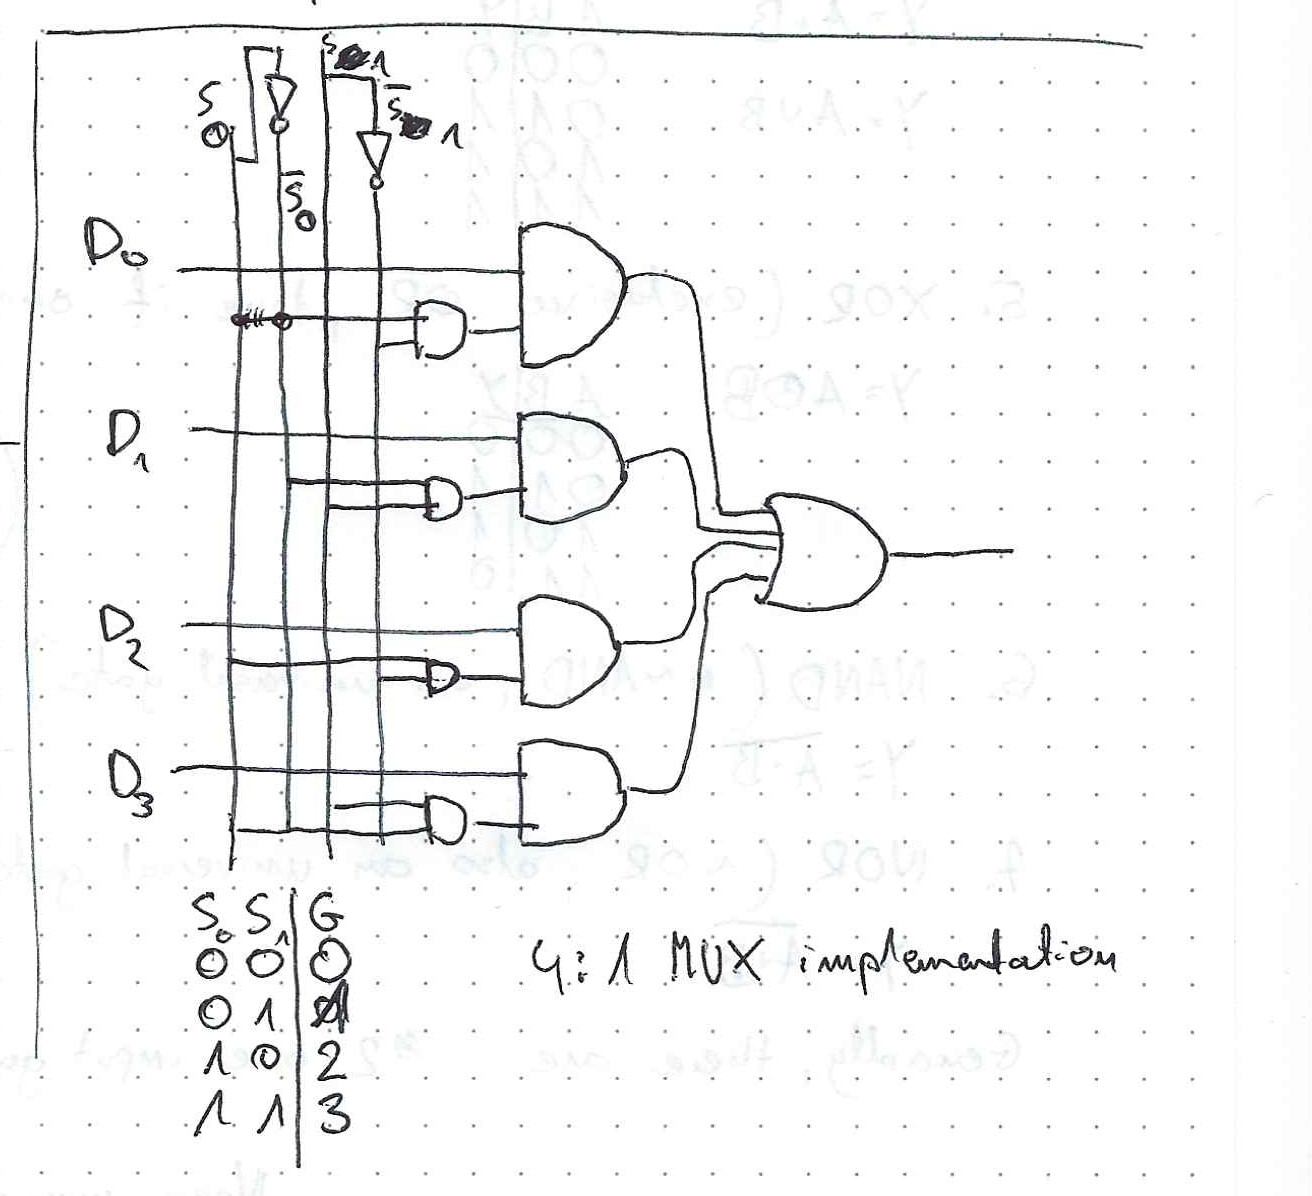 S1
S̅1
S0
S̅0
D0
D1
D2
D3
S0 S1 G
0 0 0
0 1 1
1 0 2
1 1 3
4:1 MUX implementation